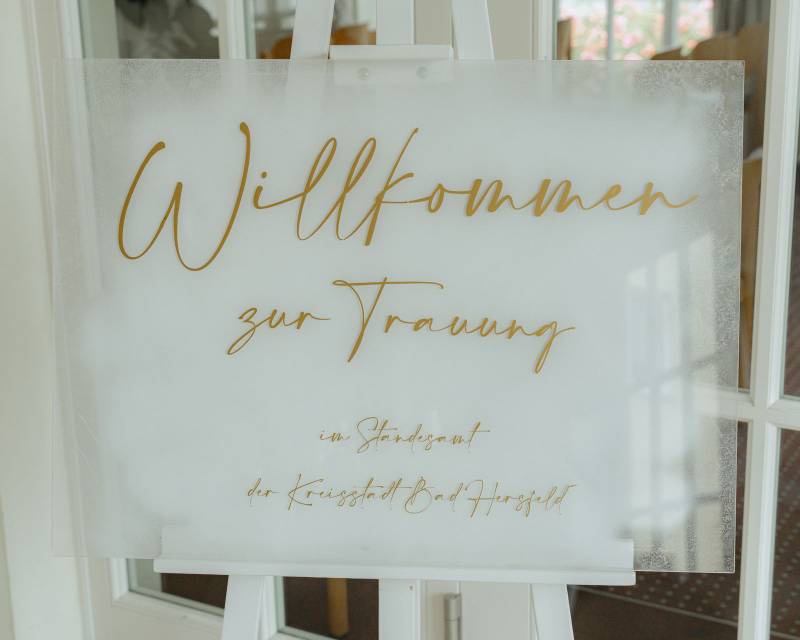 Willkommen
zur Trauung
im Standesamt
der Kreisstadt Bad Hersfeld